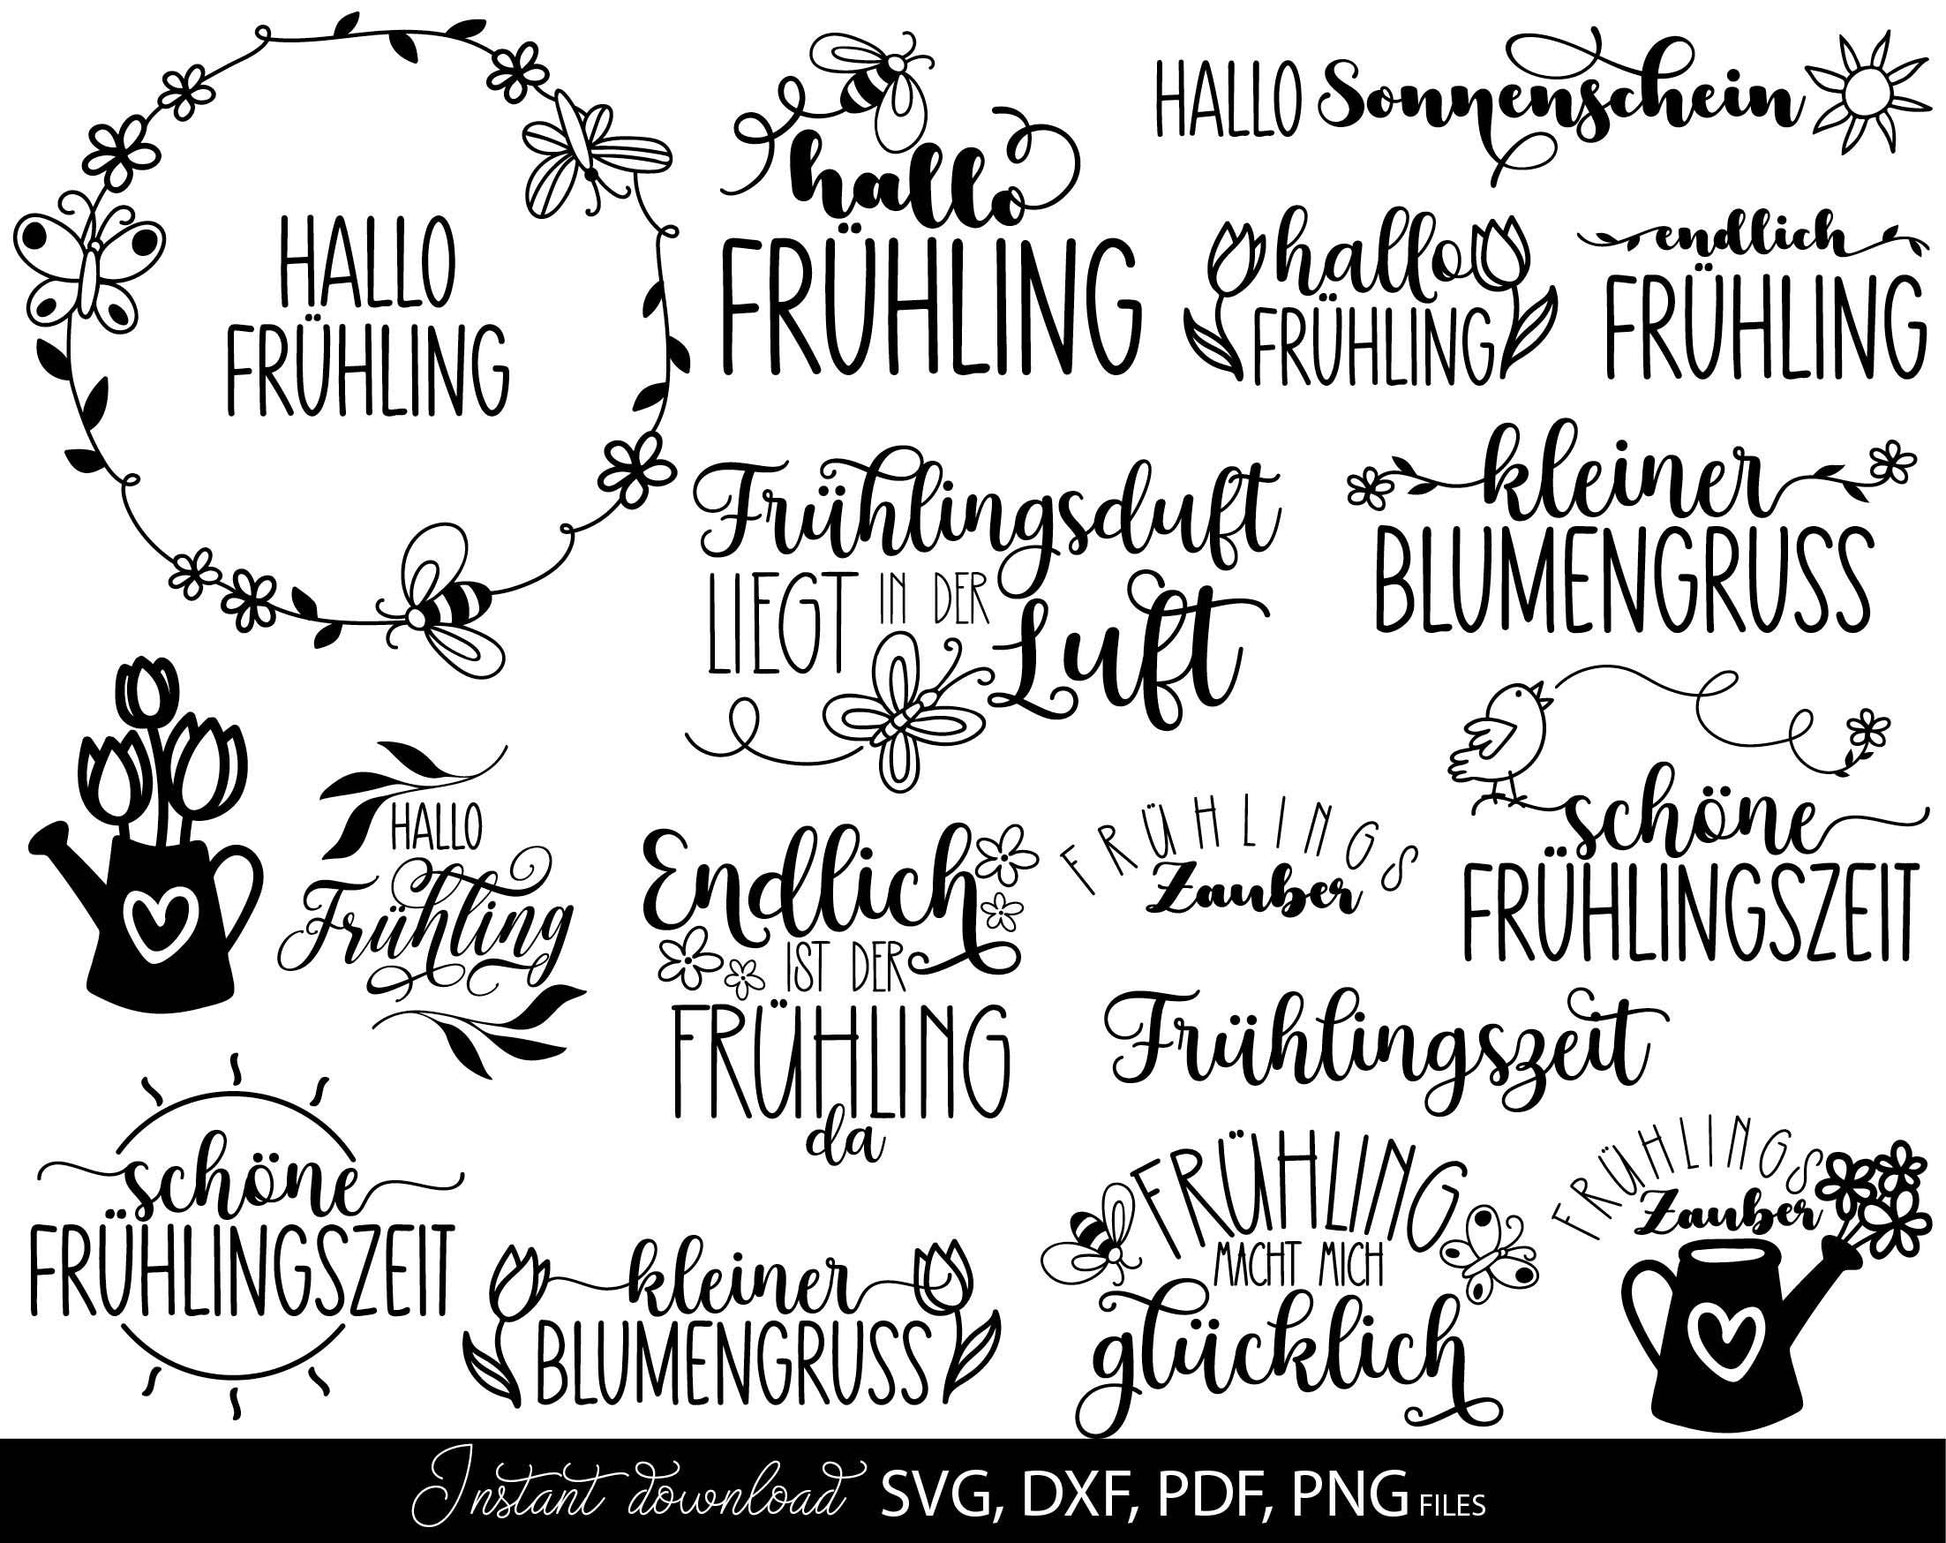 HALLO
FRÜHLING
hallo
FRÜHLING
HALLO Sonnenschein
hallo
FRÜHLING
endlich
FRÜHLING
Frühlingsduft
LIEGT IN DER
Luft
kleiner
BLUMENGRUSS
HALLO
Frühling
Endlich
IST DER
FRÜHLING
da
FRÜHLINGS
Zauber
schöne
FRÜHLINGSZEIT
Frühlingszeit
schöne
FRÜHLINGSZEIT
kleiner
BLUMENGRUSS
FRÜHLING
MACHT MICH
glücklich
FRÜHLINGS
Zauber
Instant download SVG, DXF, PDF, PNG FILES